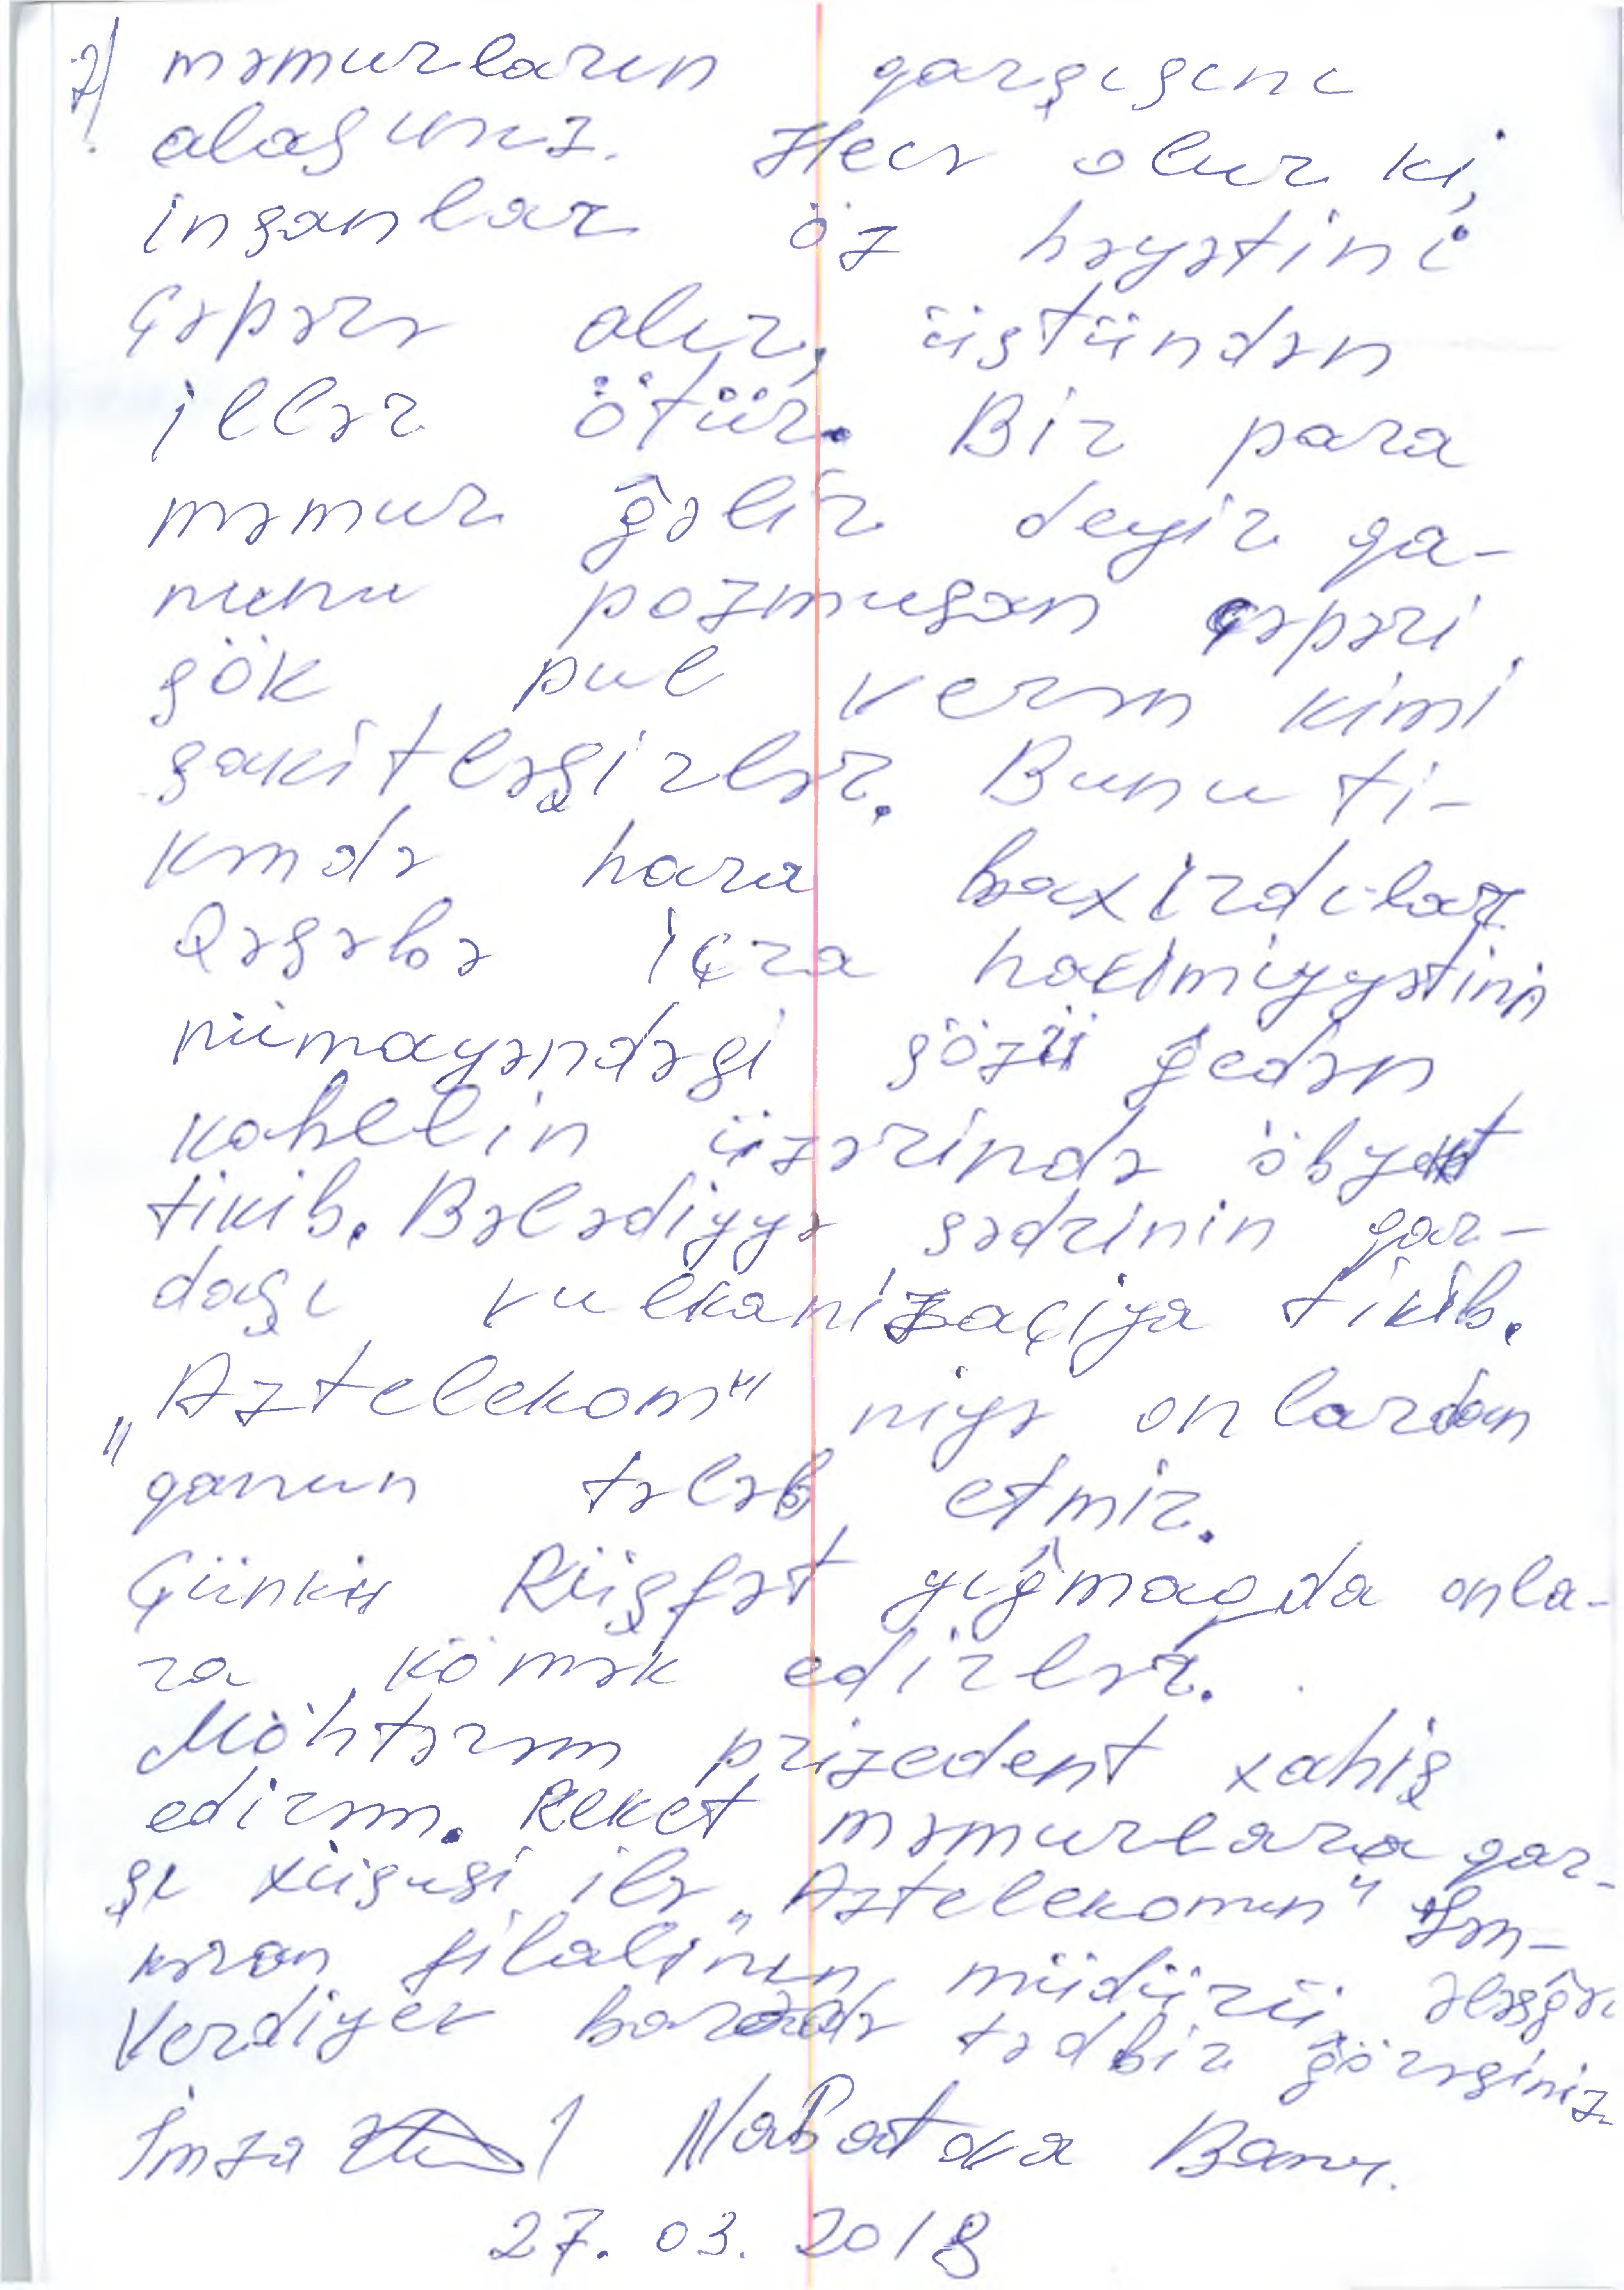 2) məmurların qarşısını
alasınız. Necə olur ki,
insanlar öz həyətini
çəpərə alır, üstündən
illər ötür. Bir para
məmur gəlir deyir qa-
nunu pozmusan çəpəri
sök pul verm kimi
sakitləşirlər. Bunu ti-
kmdə hara baxırdılar
Qəsəbə icra hakimiyyətinin
nümayəndəsi sözü gedən
kabelin üzərində öbyekt
tikib. Bələdiyyə sədrinin qar-
daşı vulkanizaçiya tikib.
"Aztelekom" niyə onlardan
qanun tələb etmir.
Çünki Rüşfət yığmaqda onla-
ra kömək edirlər.
Möhtərəm prizedent xahiş
edirəm. Reket məmurlara qar-
şı xüsusi ilə "Aztelekomun"
kəran filialının müdürü Ələsgər
Verdiyev barədə tədbir görəsiniz
İmza Nabatova Banı.
27. 03. 2018